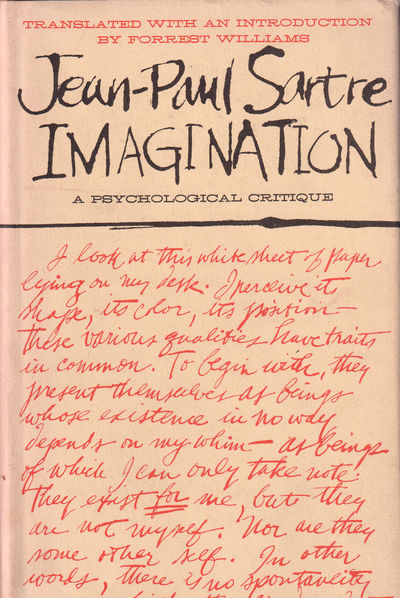 TRANSLATED WITH AN INTRODUCTION
BY FORREST WILLIAMS
Jean-Paul Sartre
IMAGINATION
A PSYCHOLOGICAL CRITIQUE
I look at this white sheet of paper
lying on my desk. I perceive its
shape, its color, its position—
these various qualities have traits
in common. To begin with, they
present themselves as beings
whose existence in no way
depends on my whim— as beings
of which I can only take note.
They exist for me, but they
are not myself. Nor are they
some other self. In other
words, there is no spontaneity